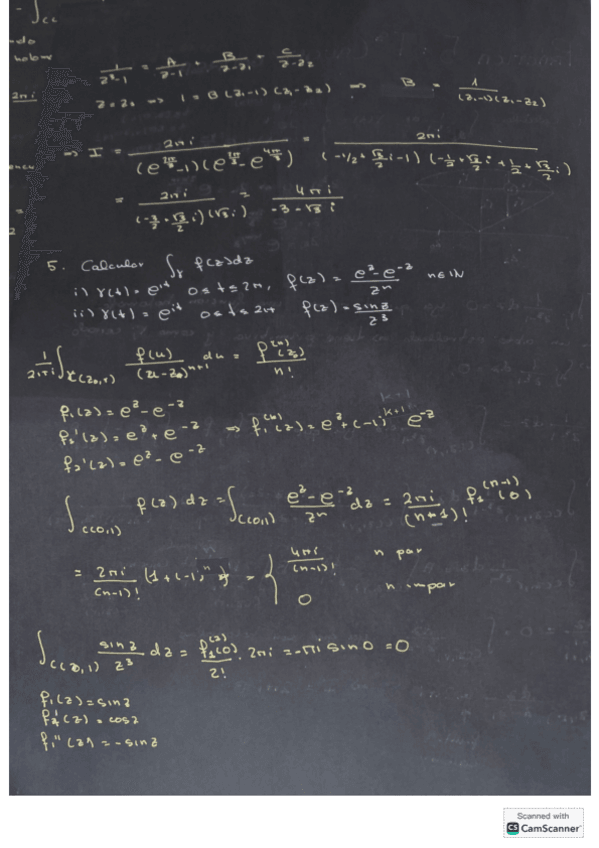 - ∫_CC
ndo
holom
1/(z³-1) = A/(z-1) + B/(z-z₁) + C/(z-z₂)
2πi
z=z₁ ⇒ 1 = B(z₁-1)(z₁-z₂) ⇒ B = 1/((z₁-1)(z₁-z₂))
⇒ I = 2πi/((e^(2πi/3)-1)(e^(2πi/3)-e^(4πi/3))) = 2πi/((-1/2+√3/2 i-1)(-1/2+√3/2 i+1/2+√3/2 i))
= 2πi/((-3/2+√3/2 i)(√3 i)) = 4πi/(-3-√3 i)
5. Calcular ∫_γ f(z)dz
i) γ(t)=e^(it) 0≤t≤2π, f(z) = (e^z-e^(-z))/z^n n∈ℕ
ii) γ(t)=e^(it) 0≤t≤2π f(z)=sinz/z³
1/(2πi) ∫_C(z₀,r) f(u)/(u-z₀)^(n+1) du = f^(n)(z₀)/n!
f₁(z)=e^z-e^(-z)
f₁'(z)=e^z+e^(-z) ⇒ f₁^(k)(z)=e^z+(-1)^(k+1) e^(-z)
f₂'(z)=e^z-e^(-z)
∫_C(0,1) f(z) dz = ∫_C(0,1) (e^z-e^(-z))/z^n dz = 2πi/(n-1)! f₁^(n-1)(0)
= 2πi/(n-1)! (1+(-1)^n) = { 4πi/(n-1)! n par
0 n impar
∫_C(0,1) sinz/z³ dz = f₁^(2)(0)/2! · 2πi = -πi sin0 = 0
f₁(z)=sinz
f₁'(z)=cosz
f₁''(z)=-sinz
Scanned with
CS CamScanner